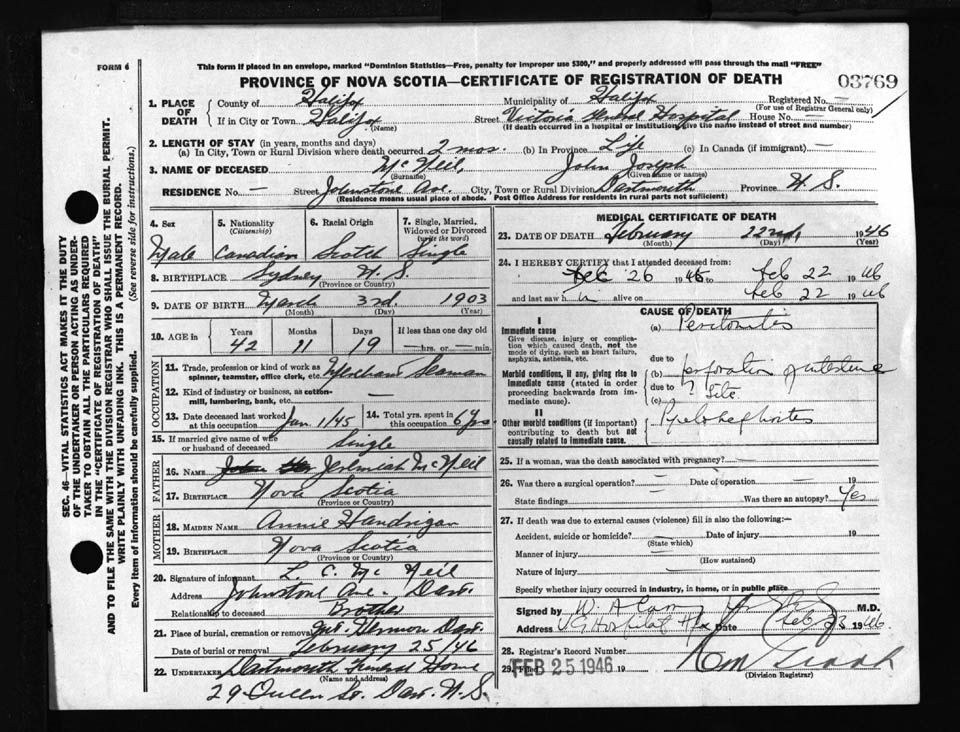 FORM 6
This form if placed in an envelope, marked "Dominion Statistics—Free, penalty for improper use $300," and properly addressed will pass through the mail "FREE"
PROVINCE OF NOVA SCOTIA—CERTIFICATE OF REGISTRATION OF DEATH
03769
1. PLACE OF DEATH County of Halifax Municipality of Halifax Registered No. — (For use of Registrar General only)
If in City or Town Halifax (Name) Street Victoria General Hospital House No. —
(If death occurred in a hospital or institution, give the name instead of street and number)
2. LENGTH OF STAY (in years, months and days)
(a) In City, Town or Rural Division where death occurred 2 mos. (b) In Province Life (c) In Canada (if immigrant) —
3. NAME OF DECEASED McNeil, (Surname) John Joseph (Given name or names)
RESIDENCE No. — Street Johnstone Ave. City, Town or Rural Division Dartmouth Province N. S.
(Residence means usual place of abode. Post Office Address for residents in rural parts not sufficient)
4. Sex 5. Nationality (Citizenship) 6. Racial Origin 7. Single, Married, Widowed or Divorced (write the word)
Male Canadian Scotch Single
8. BIRTHPLACE Sydney N. S.
(Province or Country)
9. DATE OF BIRTH March 3rd. 1903
(Month) (Day) (Year)
10. AGE in Years Months Days If less than one day old
42 11 19 —hrs. or —min.
OCCUPATION
11. Trade, profession or kind of work as spinner, teamster, office clerk, etc. Merchant Seaman
12. Kind of industry or business, as cotton-mill, lumbering, bank, etc. —
13. Date deceased last worked at this occupation Jan. 1/45 14. Total yrs. spent in this occupation 6 yrs
15. If married give name of wife or husband of deceased Single
FATHER
16. NAME John Jeremiah McNeil
17. BIRTHPLACE Nova Scotia
(Province or Country)
MOTHER
18. MAIDEN NAME Annie Handrigan
19. BIRTHPLACE Nova Scotia
(Province or Country)
20. Signature of informant L. C. McNeil
Address Johnstone Ave. Dart.
Relationship to deceased Brother
21. Place of burial, cremation or removal Mt. Hermon Dart.
Date of burial or removal February 25/46
22. UNDERTAKER Dartmouth Funeral Home
(Name and address)
29 Queen St. Dart. N. S.
MEDICAL CERTIFICATE OF DEATH
23. DATE OF DEATH February 22nd, 1946
(Month) (Day) (Year)
24. I HEREBY CERTIFY that I attended deceased from:
Dec 26 1945 to Feb 22 1946
and last saw him alive on Feb 22 1946
CAUSE OF DEATH
I
Immediate cause (a) Peritonitis
Give disease, injury or complication which caused death, not the mode of dying, such as heart failure, asphyxia, asthenia, etc.
due to
Morbid conditions, if any, giving rise to immediate cause (stated in order proceeding backwards from immediate cause). (b) perforation of intestine
due to ? Site.
(c)
II
Other morbid conditions (if important) contributing to death but not causally related to immediate cause. Pyelonephritis
25. If a woman, was the death associated with pregnancy? —
26. Was there a surgical operation? — Date of operation — 19
State findings — Was there an autopsy? Yes
27. If death was due to external causes (violence) fill in also the following:—
Accident, suicide or homicide? — Date of injury — 19
(State which)
Manner of injury —
(How sustained)
Nature of injury —
Specify whether injury occurred in industry, in home, or in public place
Signed by W. A. M.D.
Address V G Hospital Hfx Date Feb 23 1946
28. Registrar's Record Number
29. Filed FEB 25 1946 19
(Division Registrar)
SEC. 46—VITAL STATISTICS ACT MAKES IT THE DUTY
OF THE UNDERTAKER OR PERSON ACTING AS UNDER-
TAKER TO OBTAIN ALL THE PARTICULARS REQUIRED
IN THE "CERTIFICATE OF REGISTRATION OF DEATH"
AND TO FILE THE SAME WITH THE DIVISION REGISTRAR WHO SHALL ISSUE THE BURIAL PERMIT.
WRITE PLAINLY WITH UNFADING INK. THIS IS A PERMANENT RECORD.
Every item of information should be carefully supplied. (See reverse side for instructions.)